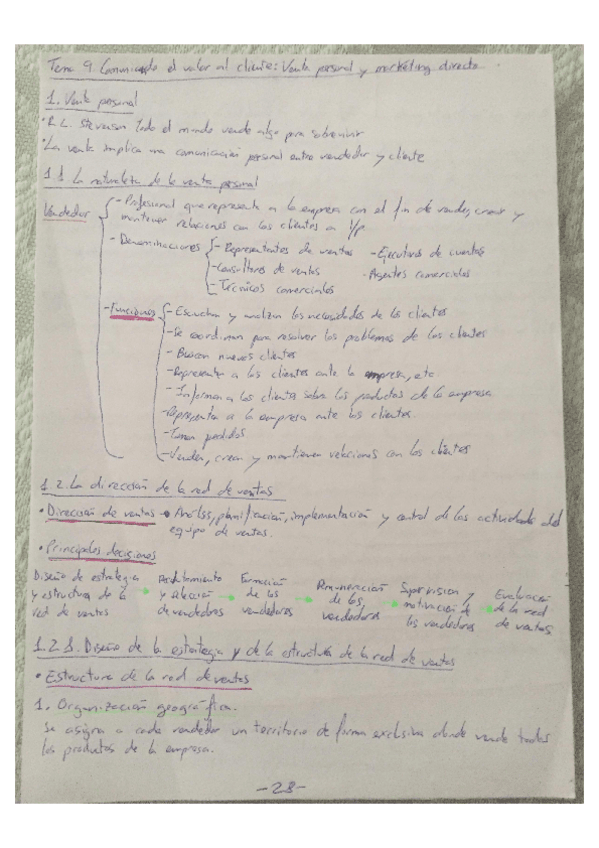 Tema 9. Comunicando el valor al cliente: Venta personal y marketing directo
1. Venta personal
• R.L. Stevenson Todo el mundo vende algo para sobrevivir
• La venta implica una comunicación personal entre vendedor y cliente
1.1 La naturaleza de la venta personal
Vendedor
- Profesional que representa a la empresa con el fin de vender, crear y
mantener relaciones con los clientes a l/p
- Denominaciones
- Representantes de ventas - Ejecutivos de cuentas
- Consultores de ventas - Agentes comerciales
- Técnicos comerciales
- Funciones
- Escuchan y analizan las necesidades de los clientes
- Se coordinan para resolver los problemas de los clientes
- Buscan nuevos clientes
- Representa a los clientes ante la empresa, etc
- Informan a los clientes sobre los productos de la empresa
- Representa a la empresa ante los clientes.
- Toman pedidos
- Venden, crean y mantienen relaciones con los clientes
1.2. La dirección de la red de ventas
• Dirección de ventas → Análisis, planificación, implementación y control de las actividades del
equipo de ventas.
• Principales decisiones
Diseño de estrategia y estructura de la red de ventas
→ Reclutamiento y selección de vendedores
→ Formación de los vendedores
→ Remuneración de los vendedores
→ Supervisión y motivación de los vendedores
→ Evaluación de la red de ventas
1.2.1. Diseño de la estrategia y de la estructura de la red de ventas
• Estructura de la red de ventas
1. Organización geográfica.
Se asigna a cada vendedor un territorio de forma exclusiva donde vende todos
los productos de la empresa.
-28-